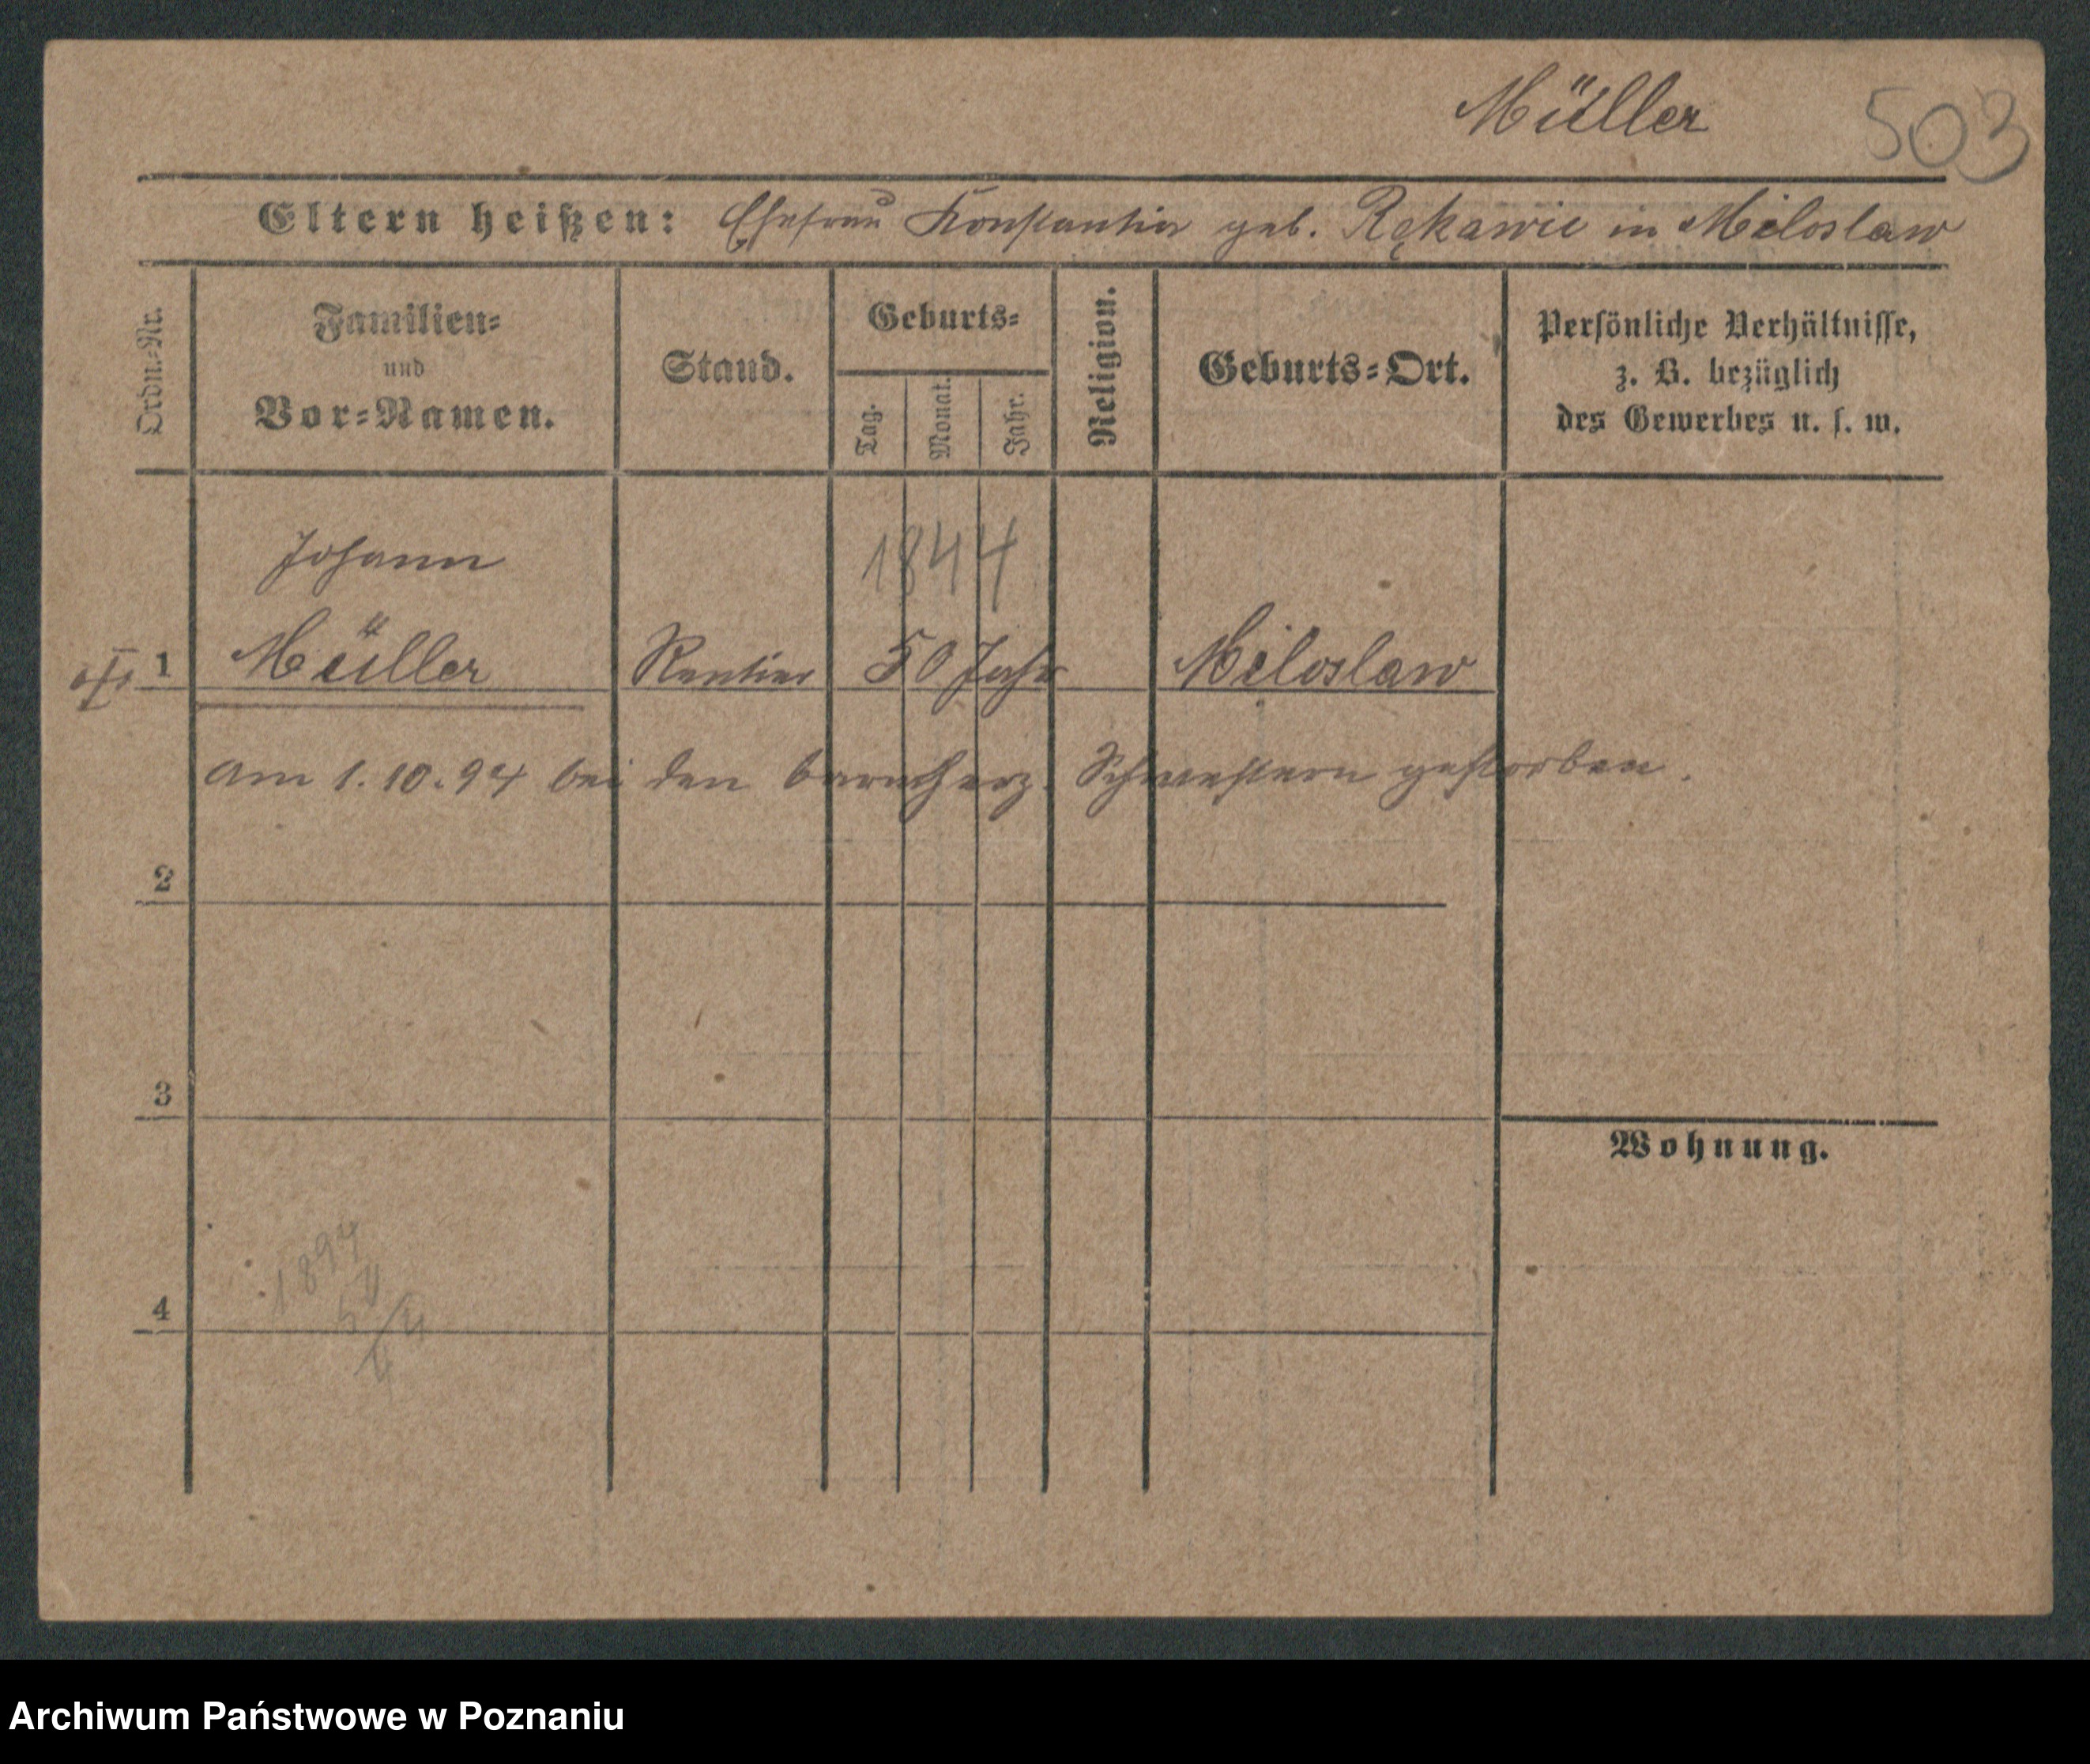 Müller 503
Eltern heißen: Ehefrau Konstantia geb. Rękawic in Miloslaw
Ordn.-Nr.
Familien-
und
Vor-Namen.
Stand.
Geburts-
Tag.
Monat.
Jahr.
Religion.
Geburts-Ort.
Persönliche Verhältnisse,
z. B. bezüglich
des Gewerbes u. s. w.
Johann 1844
1 Müller Rentier 50 Jahr Miloslaw
am 1.10.94 bei den barmherz. Schwestern gestorben.
2
3
Wohnung.
1894
4
Archiwum Państwowe w Poznaniu